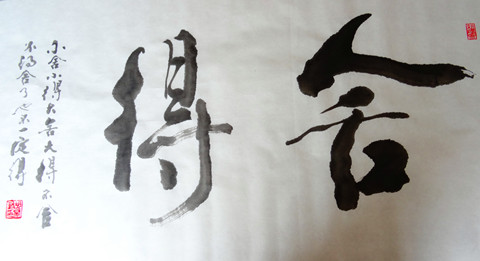 舍得
小舍小得大舍大得不舍
不得舍了也不一定得